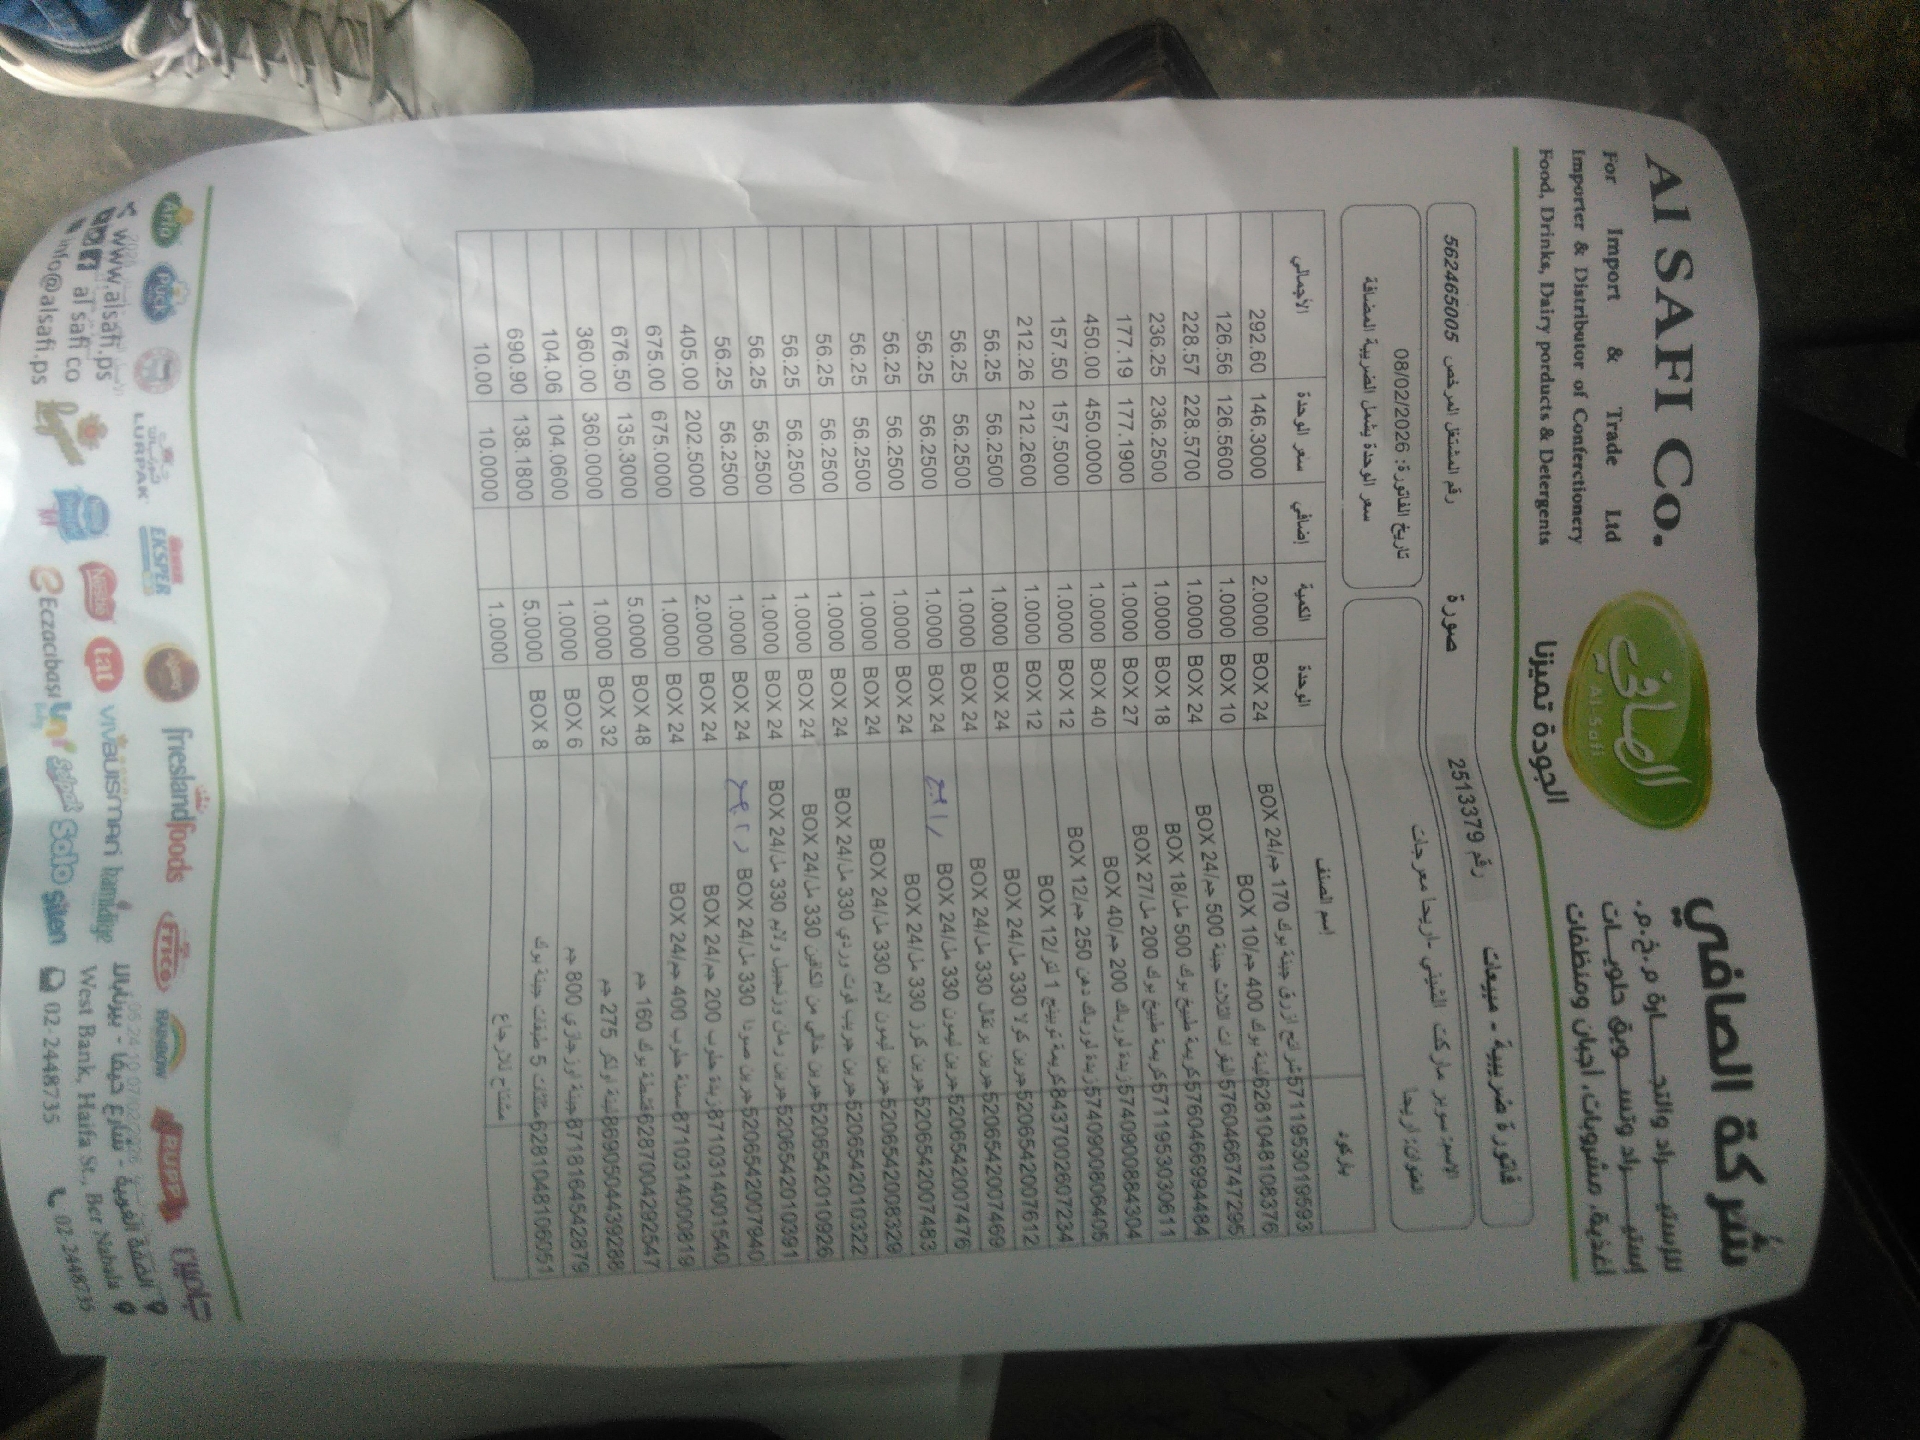 Al SAFI Co.
For Import & Trade Ltd
Importer & Distributor of Confectionery
Food, Drinks, Dairy porducts & Detergents
الصافي
Al-Safi
الجودة تميزنا
شركة الصافي
للإستيـــراد والتجـــارة م.خ.م.
إستيـــراد وتســـويق حلويـــات
أغذية، مشروبات، أجبان ومنظفات
فاتورة ضريبية - مبيعات رقم 2513379 صورة رقم المشتغل المرخص 562465005
الاسم: سوبر ماركت الثنيني -اريحا معرجات
العنوان: اريحا
تاريخ الفاتورة: 08/02/2026
سعر الوحدة يشمل الضريبة المضافة
باركود إسم الصنف الوحدة الكمية إضافي سعر الوحدة الأجمالي
5711953019593 شرائح ازرق جبنة بوك 170 جم/BOX 24 BOX 24 2.0000 146.3000 292.60
6281048108376 لبنة بوك 400 جم/BOX 10 BOX 10 1.0000 126.5600 126.56
5760466747295 البقرات الثلاث جبنة 500 جم/BOX 24 BOX 24 1.0000 228.5700 228.57
5760466994484 كريمة طبيخ بوك 500 مل/BOX 18 BOX 18 1.0000 236.2500 236.25
5711953030611 كريمة طبيخ بوك 200 مل/BOX 27 BOX 27 1.0000 177.1900 177.19
5740900884304 زبدة لورباك 200 جم/BOX 40 BOX 40 1.0000 450.0000 450.00
5740900806405 زبدة لورباك دهن 250 جم/BOX 12 BOX 12 1.0000 157.5000 157.50
8437002607234 كريمة توبينج 1 لتر/BOX 12 BOX 12 1.0000 212.2600 212.26
5206542007612 جرين كولا 330 مل/BOX 24 BOX 24 1.0000 56.2500 56.25
5206542007469 جرين برتقال 330 مل/BOX 24 BOX 24 1.0000 56.2500 56.25
5206542007476 جرين ليمون 330 مل/BOX 24 راجع BOX 24 1.0000 56.2500 56.25
5206542007483 جرين كرز 330 مل/BOX 24 BOX 24 1.0000 56.2500 56.25
5206542008329 جرين ليمون لايم 330 مل/BOX 24 BOX 24 1.0000 56.2500 56.25
5206542010322 جرين جريب فوت وردي 330 مل/BOX 24 BOX 24 1.0000 56.2500 56.25
5206542010926 جرين خالي من الكافين 330 مل/BOX 24 BOX 24 1.0000 56.2500 56.25
5206542010391 جرين رمان وزنجبيل ولايم 330 مل/BOX 24 BOX 24 1.0000 56.2500 56.25
5206542007940 جرين صودا 330 مل/BOX 24 راجع BOX 24 1.0000 56.2500 56.25
8710314001540 زبدة حلوب 200 جم/BOX 24 BOX 24 2.0000 202.5000 405.00
8710314000819 سمنة حلوب 400 جم/BOX 24 BOX 24 1.0000 675.0000 675.00
6287004292547 قشطة بوك 160 جم BOX 48 5.0000 135.3000 676.50
8690504439288 لبنة اولكر 275 جم BOX 32 1.0000 360.0000 360.00
8718164542879 جبنة اورجازي 800 جم BOX 6 1.0000 104.0600 104.06
6281048106051 مثلثات 5 طبقات جبنة بوك BOX 8 5.0000 138.1800 690.90
مشتاح للارجاع 1.0000 10.0000 10.00
Arla
Puck
LURPAK
EKSPER
frieslandfoods
Frico
RAINBOW
Nestle
tat
VIVA
UISMAN
hamidiye
Eczacıbaşı
Selpak
Solo
Silen
www.alsafi.ps
al safi co
info@alsafi.ps
الضفة الغربية - شارع حيفا - بيرنبالا
West Bank, Haifa St., Ber Nabala
02-2448735
02-2448736